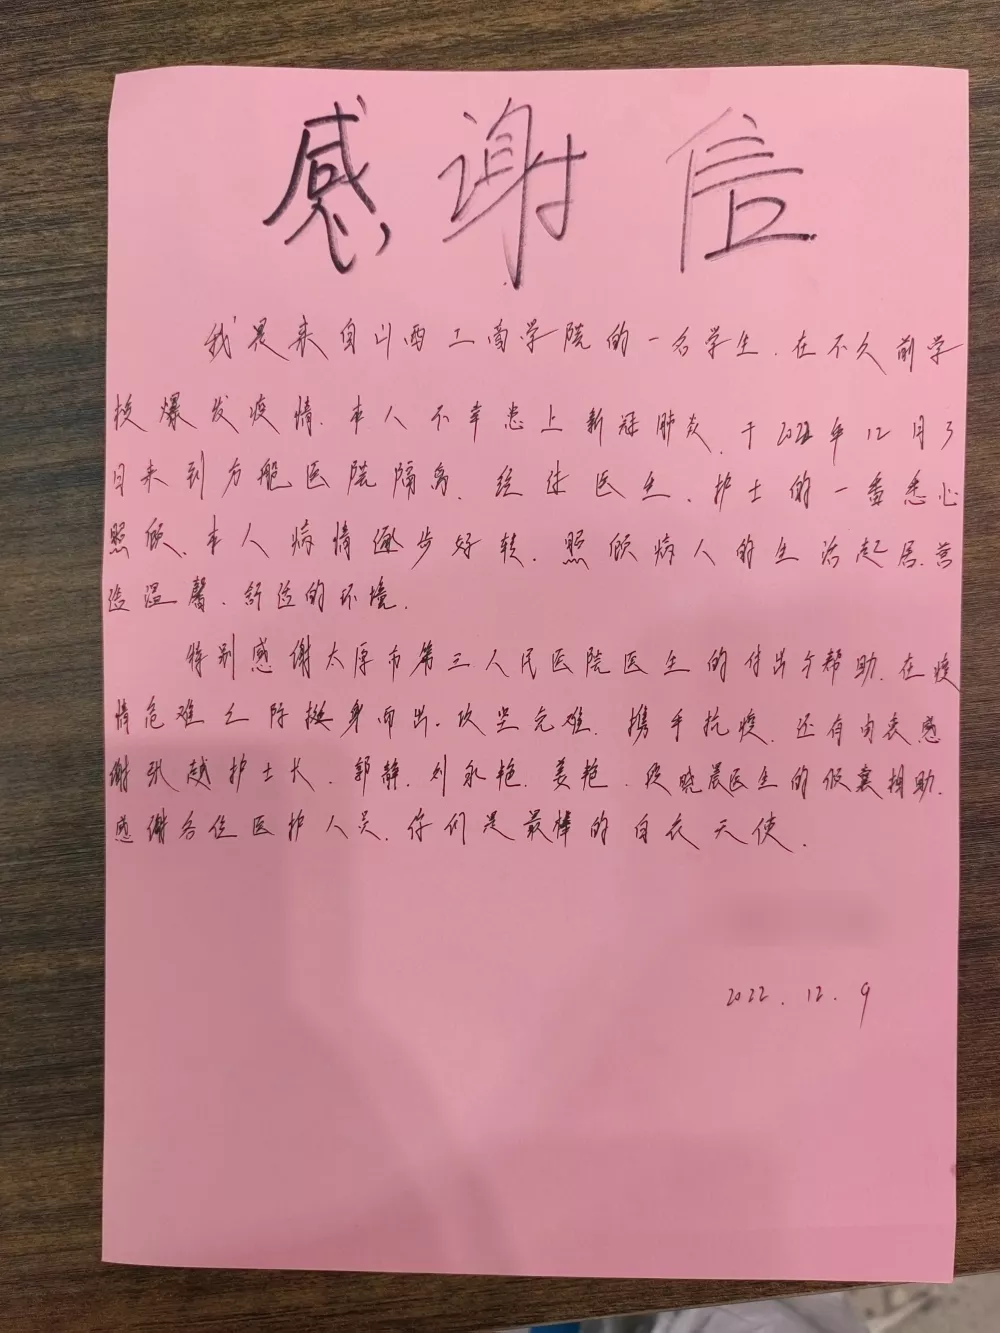 感谢信
我是来自山西工商学院的一名学生.在不久前学
校爆发疫情.本人不幸患上新冠肺炎.于2022年12月3
日来到方舱医院隔离.经过医生、护士的一番悉心
照顾、本人病情逐步好转.照顾病人的生活起居.营
造温馨、舒适的环境.
特别感谢太原市第三人民医院医生的付出与帮助.在疫
情危难之际挺身而出.攻坚克难.携手抗疫.还有由衷感
谢张越护士长、郭静、刘永艳、姜艳、段晓晨医生的倾襄相助.
感谢各位医护人员.你们是最棒的白衣天使.
2022.12.9